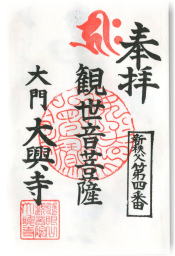 奉拝
新秩父第四番
観世音菩薩
大門 大興寺